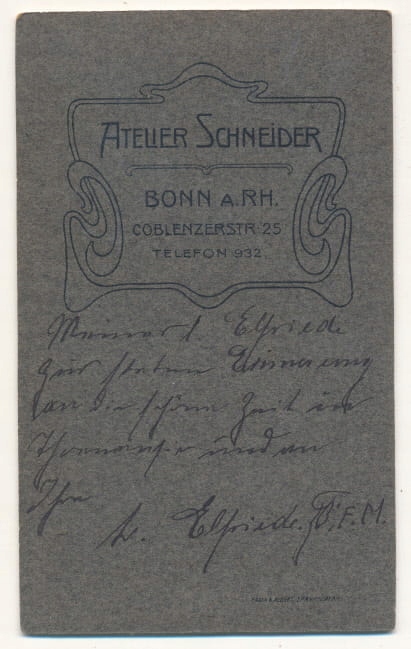 ATELIER SCHNEIDER
BONN A.RH.
COBLENZERSTR. 25
TELEFON 932.
Meiner l. Elfriede
zur steten Erinnerung
an die schöne Zeit in
und an
Ihre
l. Elfriede. F.M.